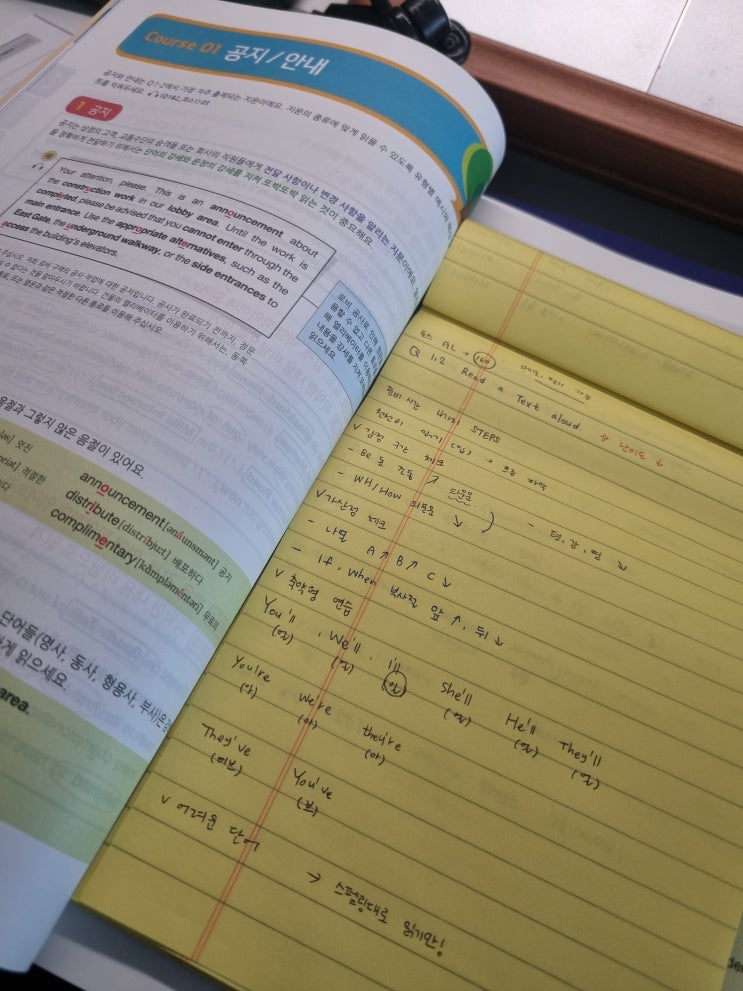 Course 01 공지 / 안내
공지와 안내는 Q1-2에서 가장 자주 출제되는 지문이에요. 지문의 종류에 맞게 읽을 수 있도록 유형별 예시와
1 공지
공지는 상점의 고객, 교통수단의 승객들 또는 회사의 직원들에게 전달 사항이나 변경 사항을 알리는 지문이에요.
을 정확하게 전달하기 위해서는 단어의 강세와 문장의 강세를 지켜 또박또박 읽는 것이 중요해요.
Your attention, please. This is an announcement about
the construction work in our lobby area. Until the work is
completed, please be advised that you cannot enter through the
main entrance. Use the appropriate alternatives, such as the
East Gate, the underground walkway, or the side entrances to
access the building's elevators.
로비 공사로 인해 정
용할 수 없고 다른
해 엘리베이터를 이용
내용을 강세를 지켜
읽으세요
음절과 그렇지 않은 음절이 있어요.
멋진
적절한
announcement [ənáunsmənt] 공지
distribute [distríbju:t] 배포하다
complimentary [kàmpləméntəri] 무료의
단어들(명사, 동사, 형용사, 부사)은
하게 읽으세요.
area.
AL
Q 1,2 Read a Text aloud. 난이도 ↓
준비시간 STEPS
천천히 읽기 → 흐름 파악
v 감점 구간 체크
- Be 동 의문문 ↗
- WH/How 의문문 ↘
v 가산점 체크
- 나열 A↗ B↗ C↘
- If, When 부사절 앞 ↑, 뒤 ↘
v 축약형 연습
You'll, We'll, I'll She'll He'll They'll
You're We're they're
(아) (아) (아)
They've You've
(브)
v 어려운 단어
→ 스펠링대로 읽기만!